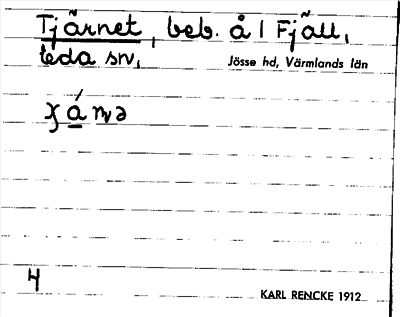 Tjärnet, beb. å 1 Fjäll,
teda sn,
Jösse hd, Värmlands län
4
KARL RENCKE 1912